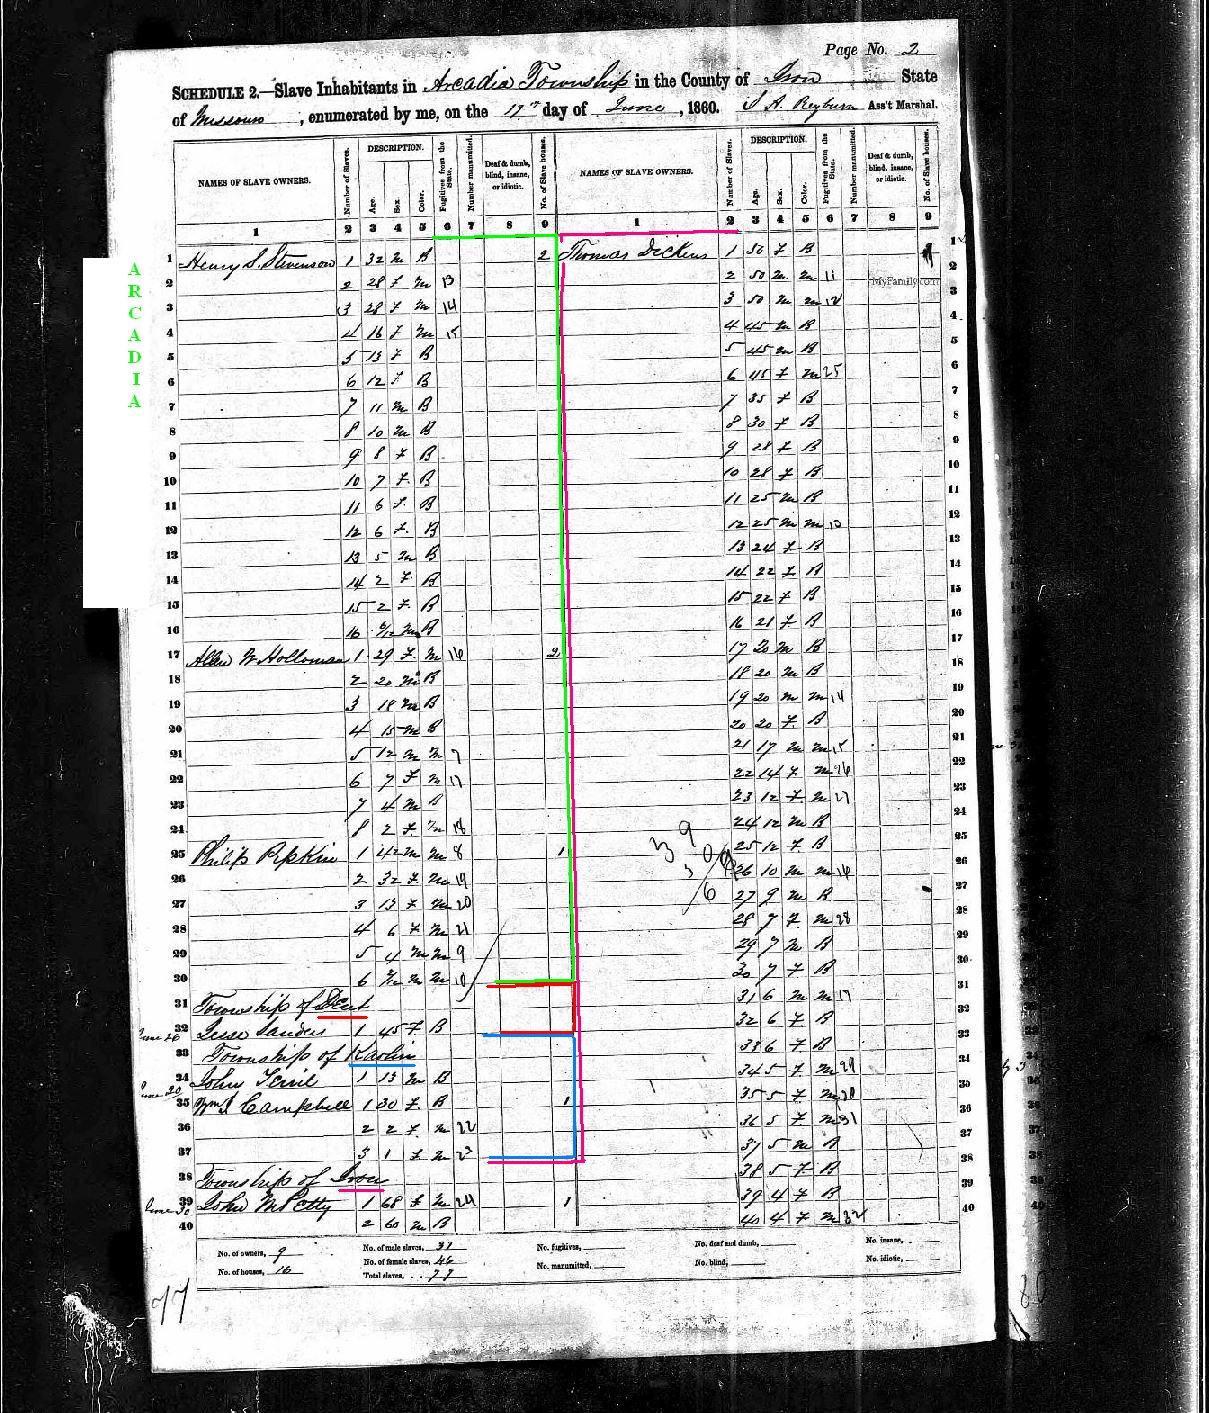 Page No. 2
SCHEDULE 2.—Slave Inhabitants in Arcadia Township in the County of Iron State
of Missouri, enumerated by me, on the 17th day of June, 1860. Ass't Marshal.
NAMES OF SLAVE OWNERS. Number of Slaves. DESCRIPTION. Age. Sex. Color. Fugitives from the State. Number manumitted. Deaf & dumb, blind, insane, or idiotic. No. of Slave houses. NAMES OF SLAVE OWNERS. Number of Slaves. DESCRIPTION. Age. Sex. Color. Fugitives from the State. Number manumitted. Deaf & dumb, blind, insane, or idiotic. No. of Slave houses.
1 2 3 4 5 6 7 8 9 1 2 3 4 5 6 7 8 9
ARCADIA
MyFamily.com
1 Henry S. Stevenson 1 32 m B 2 Thomas Dickens 1 50 f B 1
2 2 28 f m 13 2 50 m m 11 2
3 3 28 f m 14 3 50 m m 12 3
4 4 16 f m 15 4 45 m B 4
5 5 13 f B 5 45 m B 5
6 6 12 f B 6 45 f m 25 6
7 7 11 m B 7 35 f B 7
8 8 10 m B 8 30 f B 8
9 9 8 f B 9 28 f B 9
10 10 7 f B 10 28 f B 10
11 11 6 f B 11 25 m B 11
12 12 6 f B 12 25 m m 13 12
13 13 5 m B 13 24 f B 13
14 14 2 f B 14 22 f B 14
15 15 2 f B 15 22 f B 15
16 16 m B 16 21 f B 16
17 Allen W Holloman 1 29 f m 16 2 17 20 m B 17
18 2 20 m B 18 20 m B 18
19 3 18 m B 19 20 m m 14 19
20 4 15 m B 20 20 f B 20
21 5 12 m m 7 21 17 m m 15 21
22 6 7 f m 17 22 14 f m 26 22
23 7 4 m B 23 12 f m 27 23
24 8 2 f m 18 24 12 m B 24
25 Philip Pipkin 1 42 m m 8 1 25 12 f B 25
26 2 32 f m 19 26 10 m m 16 26
27 3 13 f m 20 27 9 m B 27
28 4 6 f m 21 28 7 f m 28 28
29 5 4 m m 9 29 7 m B 29
30 6 m m 10 30 7 f B 30
31 Township of Dent 31 6 m m 17 31
32 Sanders 1 45 f B 32 6 f B 32
33 Township of Kaolin 33 6 f B 33
34 John 1 13 m B 34 5 f m 29 34
35 Wm J Campbell 1 30 f B 1 35 5 f m 30 35
36 2 2 f m 22 36 5 f m 31 36
37 3 1 f m 23 37 5 m B 37
38 Township of Iron 38 5 f B 38
39 John M Petty 1 68 f m 24 1 39 4 f B 39
40 2 60 m B 40 4 f m 32 40
No. of owners, 9 No. of male slaves, 31 No. fugitives, No. deaf and dumb, No. insane,
No. of houses, 10 No. of female slaves, 46 No. manumitted, No. blind, No. idiotic,
Total slaves, 77
77